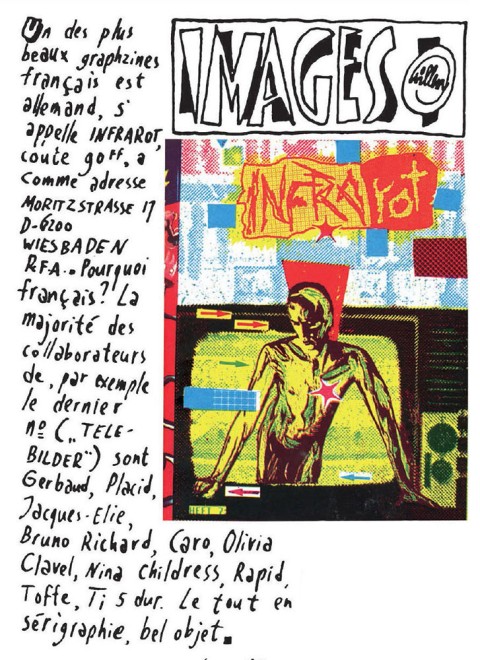 Un des plus
beaux graphzines
français est
allemand, s'
appelle INFRAROT,
coute 90FF, a
comme adresse
MORITZSTRASSE 17
D-6200
WIESBADEN
R.F.A.. Pourquoi
français? La
majorité des
collaborateurs
de, par exemple
le dernier
nº („TELE-
BILDER") sont
Gerbaud, Placid,
Jacques-Elie,
Bruno Richard, Caro, Olivia
Clavel, Nina childress, Rapid,
Toffe, Ti 5 dur. Le tout en
sérigraphie, bel objet.
IMAGES
Willem
INFRArot
HEFT 7